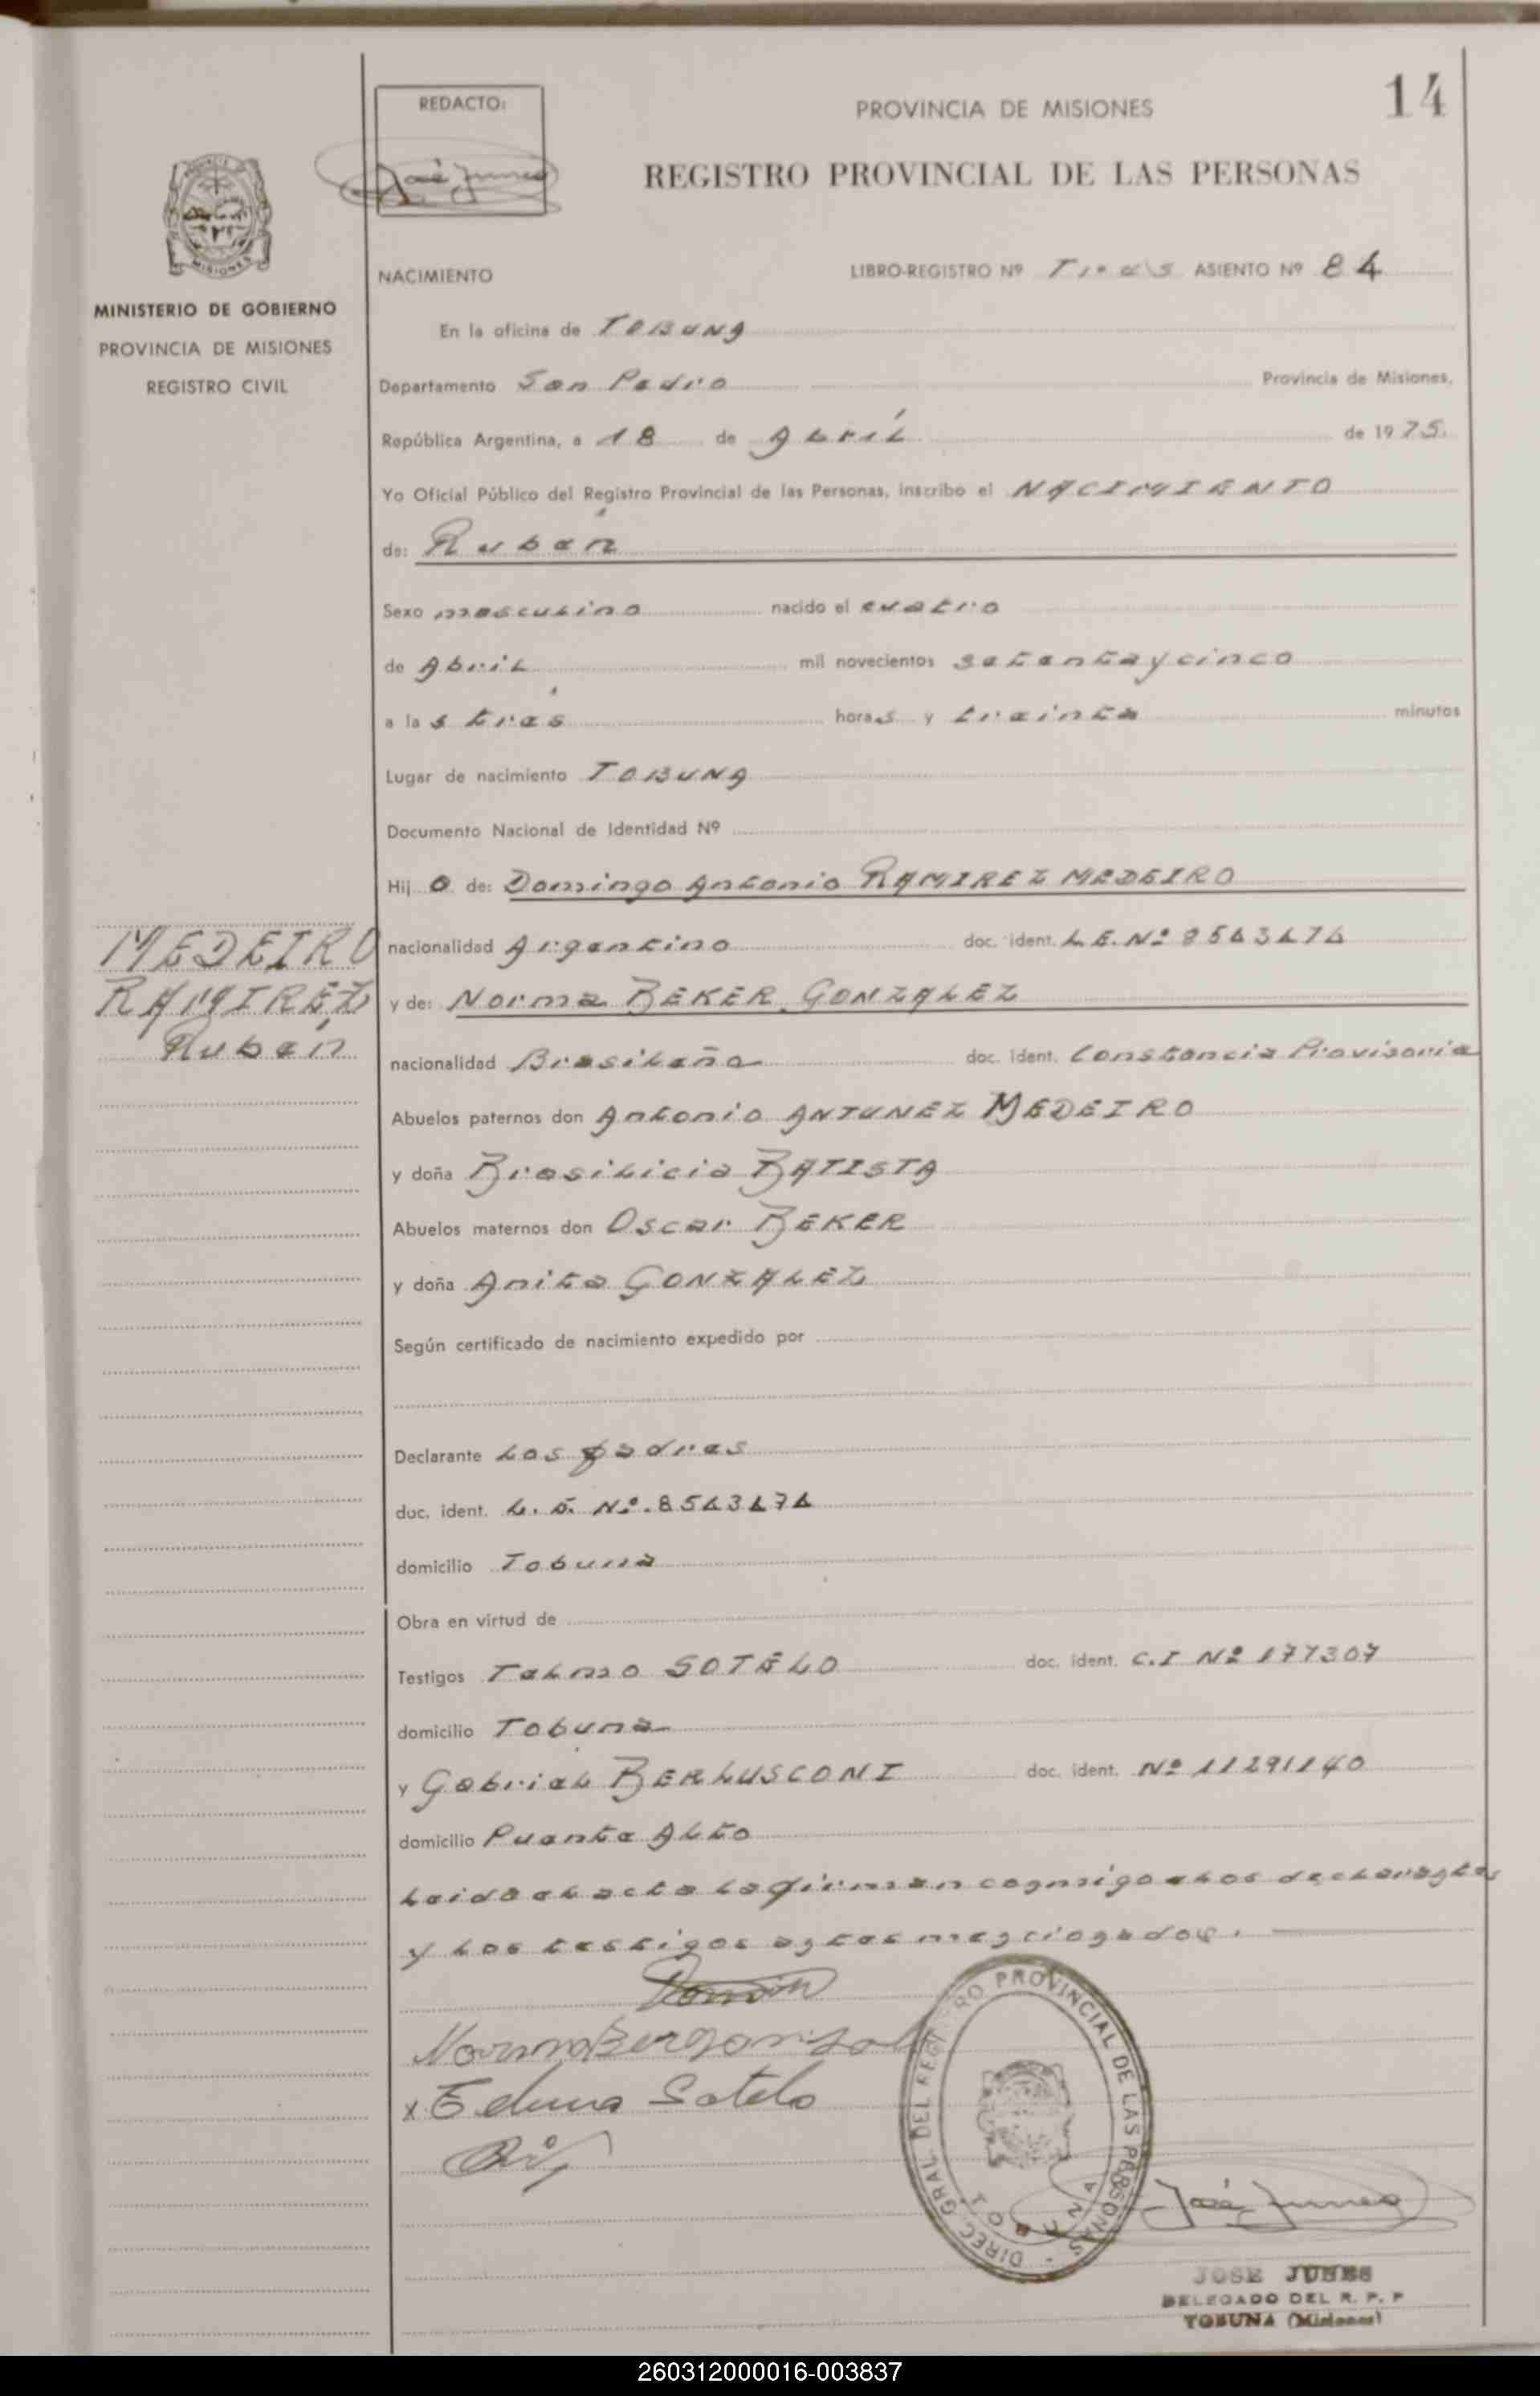 14
REDACTO:
PROVINCIA DE MISIONES
REGISTRO PROVINCIAL DE LAS PERSONAS
MISIONES
MINISTERIO DE GOBIERNO
PROVINCIA DE MISIONES
REGISTRO CIVIL
NACIMIENTO LIBRO-REGISTRO Nº Tres ASIENTO Nº 84
En la oficina de TOBUNA
Departamento San Pedro Provincia de Misiones,
República Argentina, a 18 de Abríl de 1975.
Yo Oficial Público del Registro Provincial de las Personas, inscribo el NACIMIENTO
de: Rubén
Sexo masculino nacido el cuatro
de Abril mil novecientos setenta y cinco
a las trés horas y treinta minutos
Lugar de nacimiento TOBUNA
Documento Nacional de Identidad Nº
Hijo de: Domingo Antonio RAMIREZ MEDEIRO
nacionalidad Argentino doc. ident. L.E. Nº
MEDEIRO
RAMIREZ
Rubén
y de: Norma BEKER GONZALEZ
nacionalidad Brasileña doc. ident. Constancia Provisoria
Abuelos paternos don Antonio ANTUNEZ MEDEIRO
y doña Brasilicia BATISTA
Abuelos maternos don Oscar BEKER
y doña Anita GONZALEZ
Según certificado de nacimiento expedido por
Declarante Los padres
doc. ident. L.E. Nº.
domicilio Tobuna
Obra en virtud de
Testigos Telmo SOTELO doc. ident. C.I Nº 177307
domicilio Tobuna
y Gabriel BERLUSCONI doc. ident. Nº 11291140
domicilio Puente Alto
Leida el acta la firman conmigo los declarantes
y los testigos antes mencionados.
Sotelo
DIREC. GRAL. DEL REGISTRO PROVINCIAL DE LAS PERSONAS
TOBUNA
JOSE JUNES
DELEGADO DEL R. P. P
TOBUNA (Misiones)
260312000016-003837